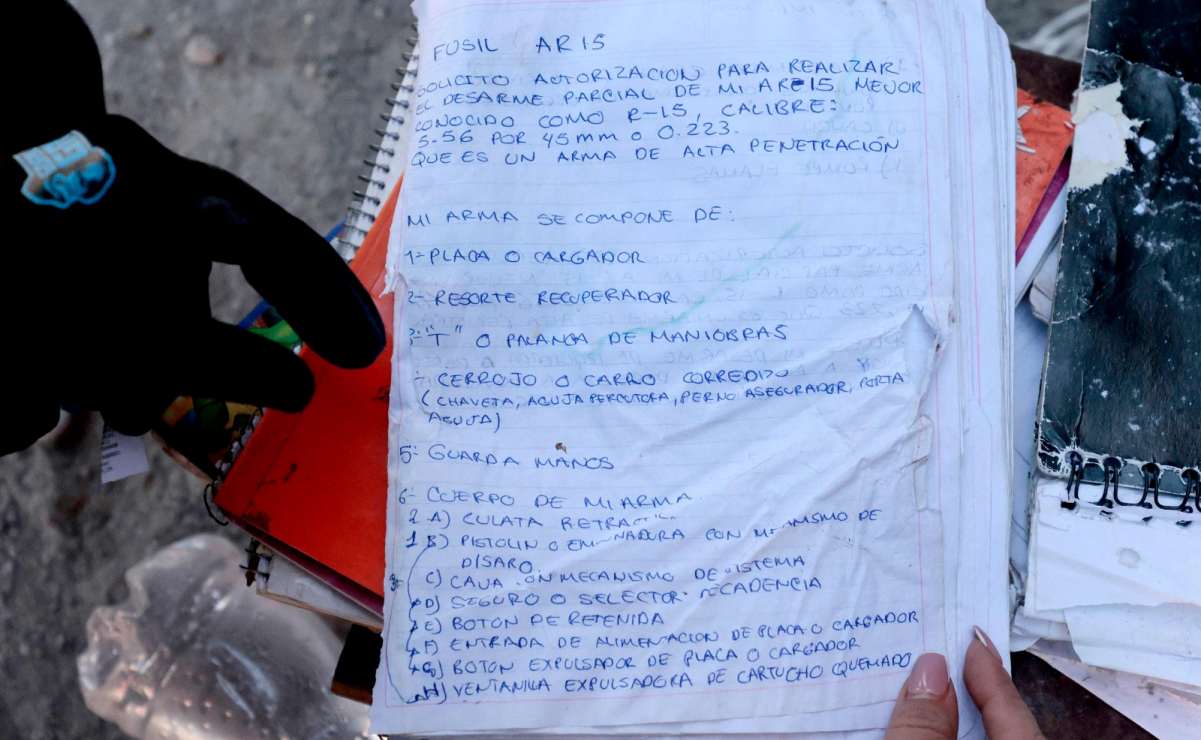 FUSIL AR15
SOLICITO AUTORIZACION PARA REALIZAR
EL DESARME PARCIAL DE MI ARE15 MEJOR
CONOCIDO COMO R-15, CALIBRE:
5.56 POR 45mm o 0.223.
QUE ES UN ARMA DE ALTA PENETRACIÓN
MI ARMA SE COMPONE DE:
1- PLACA O CARGADOR
2- RESORTE RECUPERADOR
3- "T" O PALANCA DE MANIOBRAS
- CERROJO O CARRO CORREDIZO
(CHAVETA, AGUJA PERCUTORA, PERNO ASEGURADOR, PORTA
AGUJA)
5- GUARDA MANOS
6- CUERPO DE MI ARMA.
2 A) CULATA
1 B) PISTOLIN O CON DE
DISARO.
C) CAJA MECANISMO DE
D) SEGURO O SELECTOR
E) BOTON DE RETENIDA
F) ENTRADA DE ALIMENTACION DE PLACA O CARGADOR
G) BOTON EXPULSADOR DE PLACA O CARGADOR
H) VENTANILLA EXPULSADORA DE CARTUCHO QUEMADO